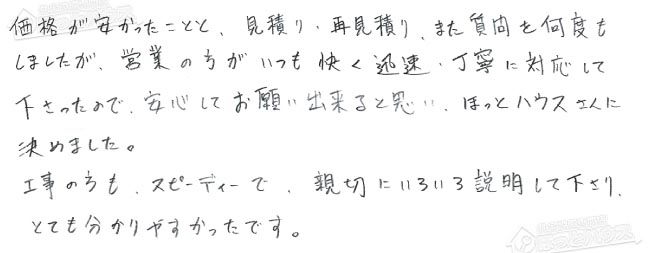 価格が安かったことと、見積り・再見積り、また質問を何度も
しましたが、営業の方がいつも快く迅速・丁寧に対応して
下さったので、安心してお願い出来ると思い、ほっとハウスさんに
決めました。
工事の方も、スピーディーで、親切にいろいろ説明して下さり、
とても分かりやすかったです。